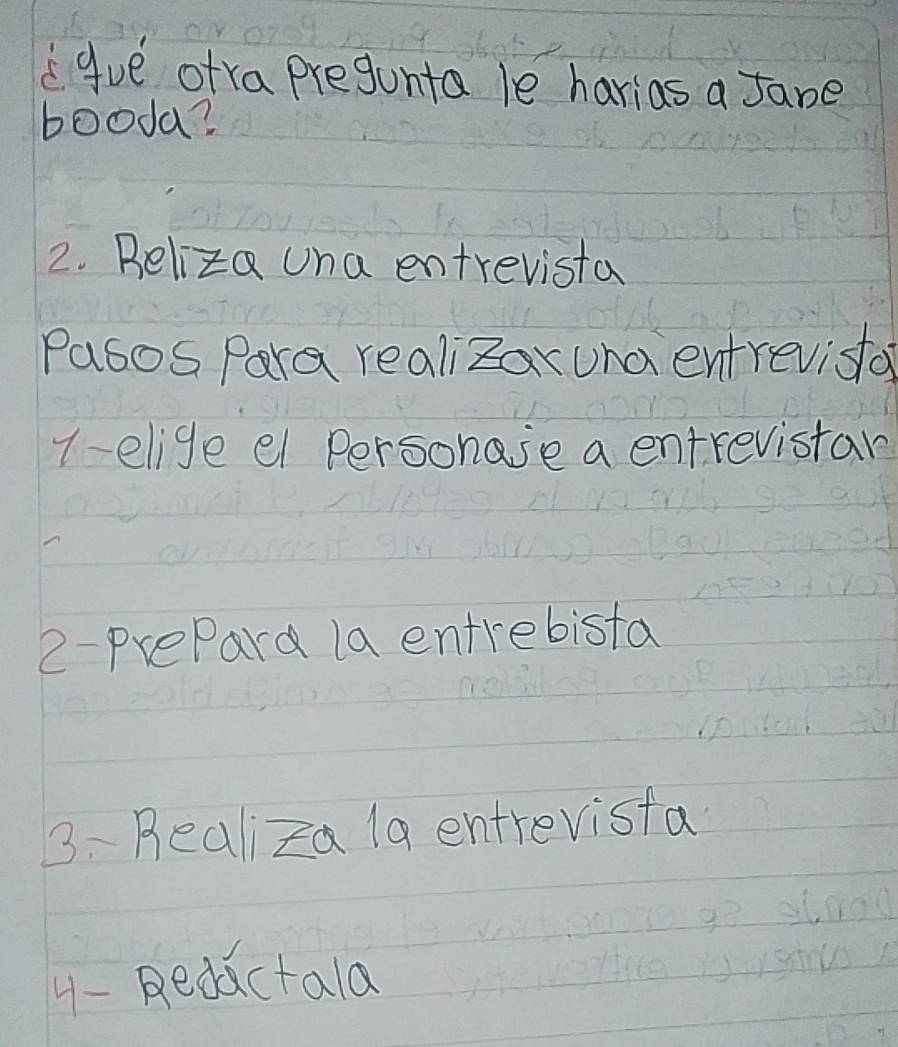 ¿qué otra pregunta le harias a Jane
booda?
2. Reliza una entrevista
Pasos Para realizar una entrevista
1-elige el Personaje a entrevistar
2-prePara la entrebista
3.- Realiza la entrevista
4- Redáctala